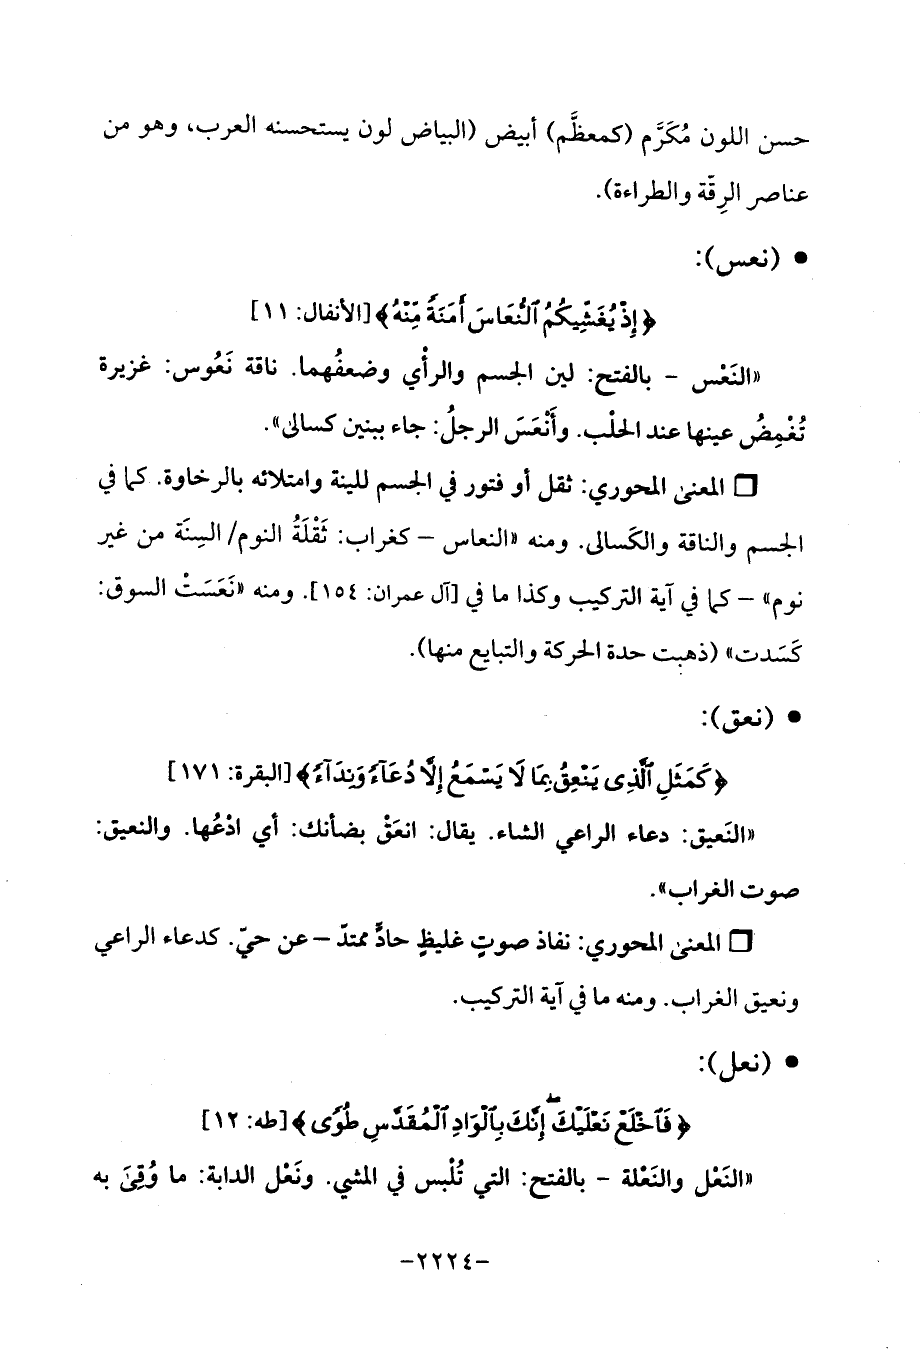 حسن اللون مُكَرَّم (كمعظَّم) أبيض (البياض لون يستحسنه العرب، وهو من
عناصر الرِقّة والطراءة).
• (نعس):
﴿إِذْ يُغَشِّيكُمُ ٱلنُّعَاسَ أَمَنَةً مِّنْهُ﴾ [الأنفال: ١١]
«النَعْس - بالفتح: لين الجسم والرأْي وضعفُهما. ناقة نَعُوس: غزيرة
تُغْمِضُ عينها عند الحلْب. وأَنْعَسَ الرجلُ: جاء ببنين كسالى».
❒ المعنى المحوري: ثقل أو فتور في الجسم للينة وامتلائه بالرخاوة. كما في
الجسم والناقة والكَسالى. ومنه «النعاس – كغراب: ثَقْلَةُ النوم/ السِنَة من غير
نوم» – كما في آية التركيب وكذا ما في [آل عمران: ١٥٤]. ومنه «نَعَسَتْ السوق:
كَسَدت» (ذهبت حدة الحركة والتبايع منها).
• (نعق):
﴿كَمَثَلِ ٱلَّذِى يَنْعِقُ بِمَا لَا يَسْمَعُ إِلَّا دُعَآءً وَنِدَآءً﴾ [البقرة: ١٧١]
«النَعيق: دعاء الراعي الشاء. يقال: انعَقْ بضأنك: أي ادْعُها. والنعيق:
صوت الغراب».
❒ المعنى المحوري: نفاذ صوتٍ غليظٍ حادٍّ ممتدّ – عن حيّ. كدعاء الراعي
ونعيق الغراب. ومنه ما في آية التركيب.
• (نعل):
﴿فَٱخْلَعْ نَعْلَيْكَ ۖ إِنَّكَ بِٱلْوَادِ ٱلْمُقَدَّسِ طُوًى﴾ [طه: ١٢]
«النَعْل والنَعْلة - بالفتح: التي تُلْبس في المشي. ونَعْل الدابة: ما وُقِىَ به
-٢٢٢٤-